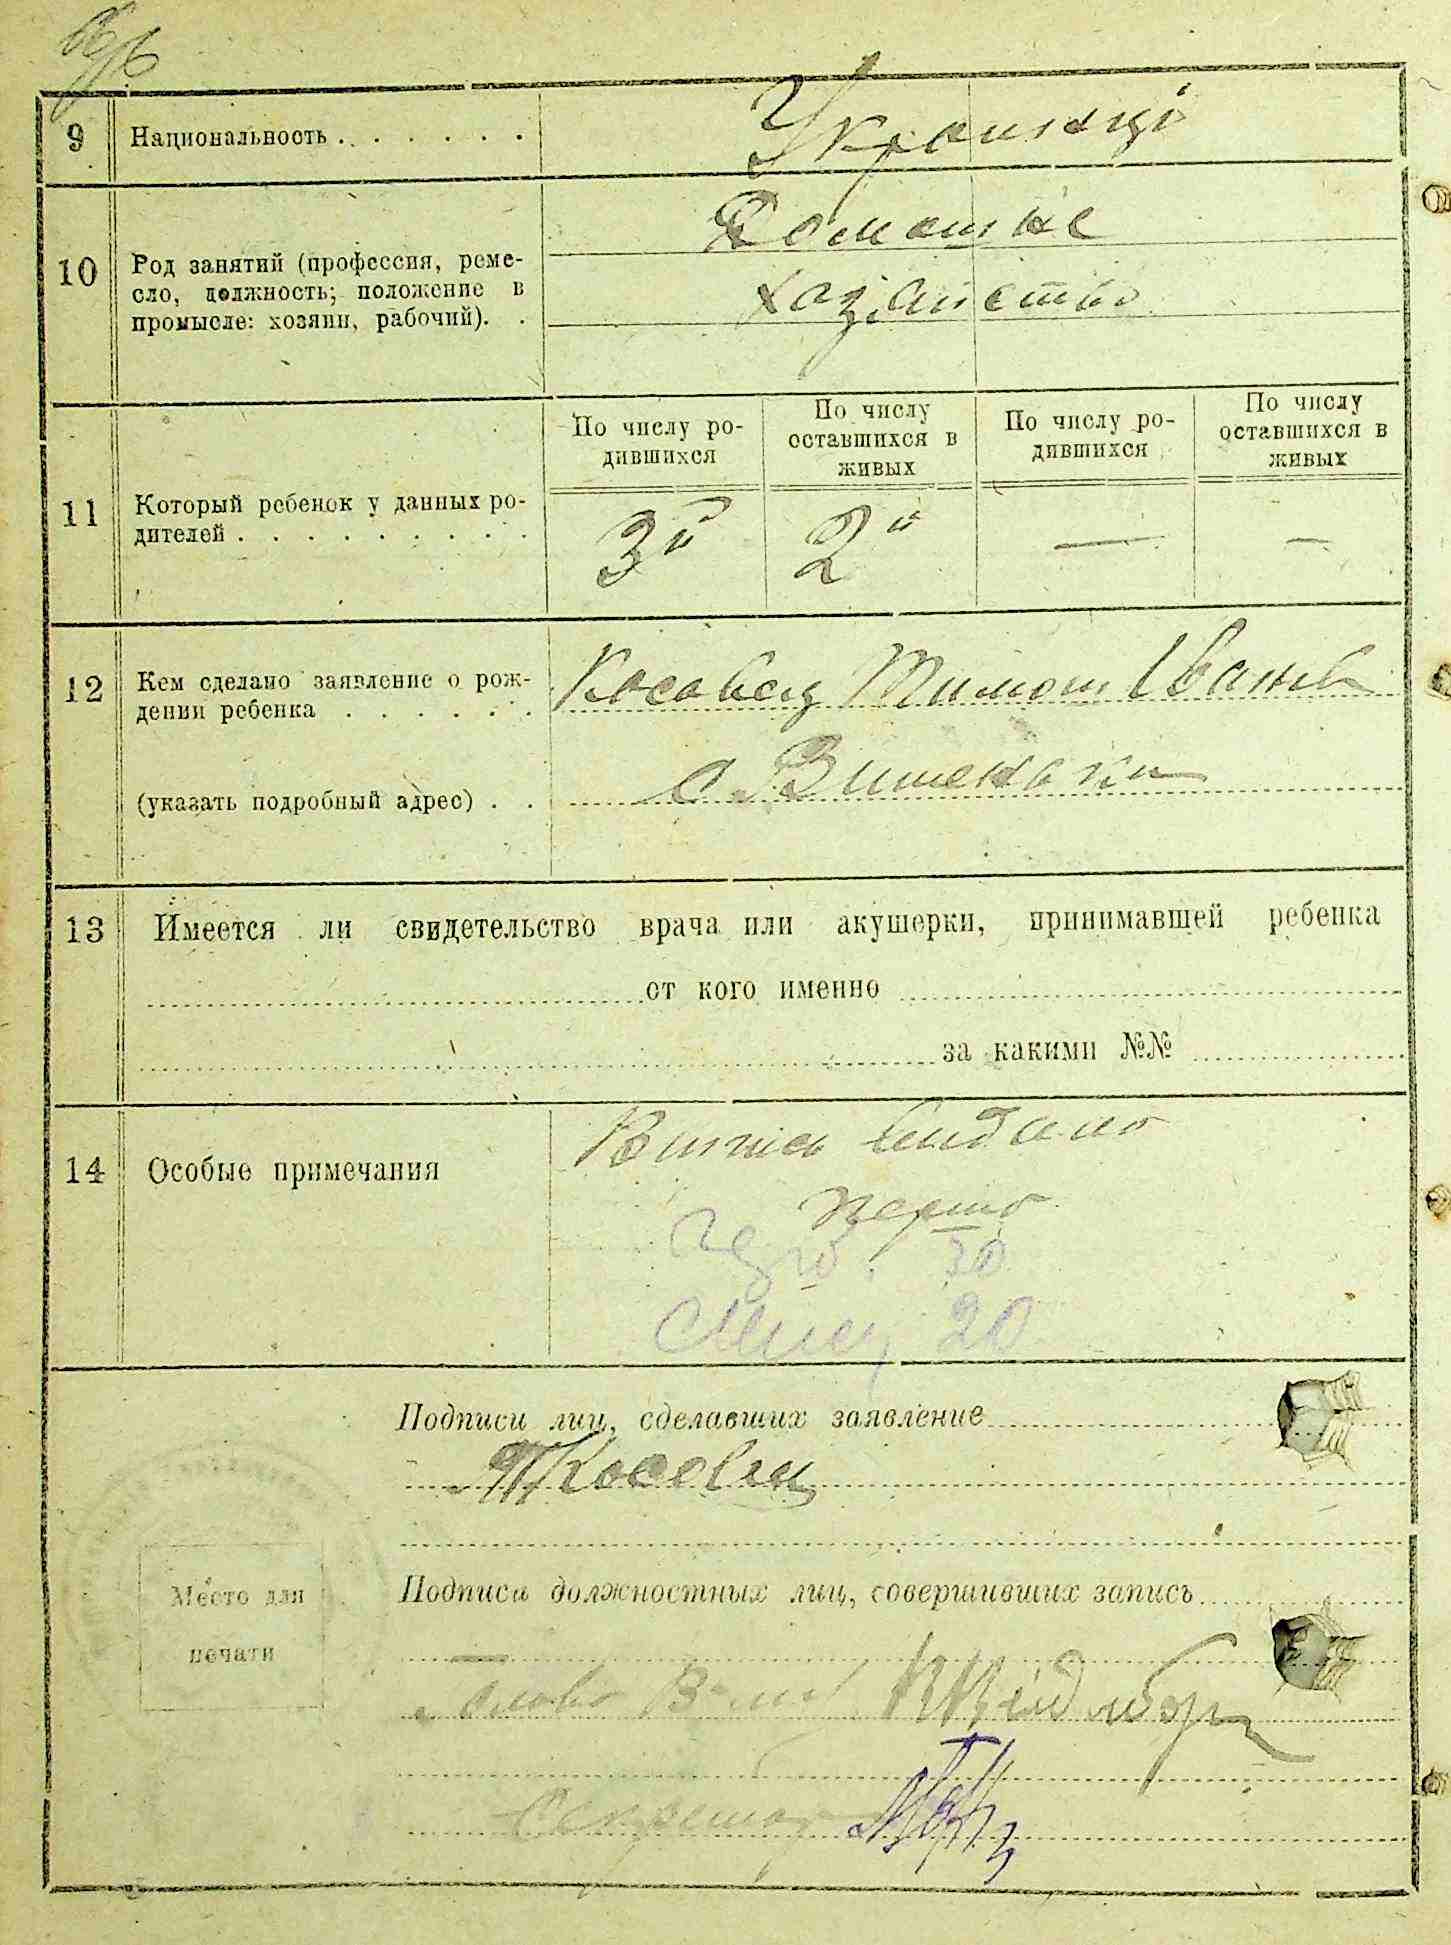 9 Национальность . . . . . . . Українці
10 Род занятий (профессия, реме-
сло, должность; положение в
промысле: хозяин, рабочий). .
Домашнє
хазяйство
11 Который ребенок у данных ро-
дителей . . . . . . . . . .
По числу ро-
дившихся
По числу
оставшихся в
живых
По числу ро-
дившихся
По числу
оставшихся в
живых
3й 2й — —
12 Кем сделано заявление о рож-
дении ребенка . . . . . .
Косовец Тимош Іванів
(указать подробный адрес) . .
с Вишеньки
13 Имеется ли свидетельство врача или акушерки, принимавшей ребенка
от кого именно
за какими №№
14 Особые примечания
Витяг видано
перше
30
20
Подписи лиц, сделавших заявление
ТКосовец
Подписи должностных лиц, совершивших запись
Место для
печати
Голова
Секретар